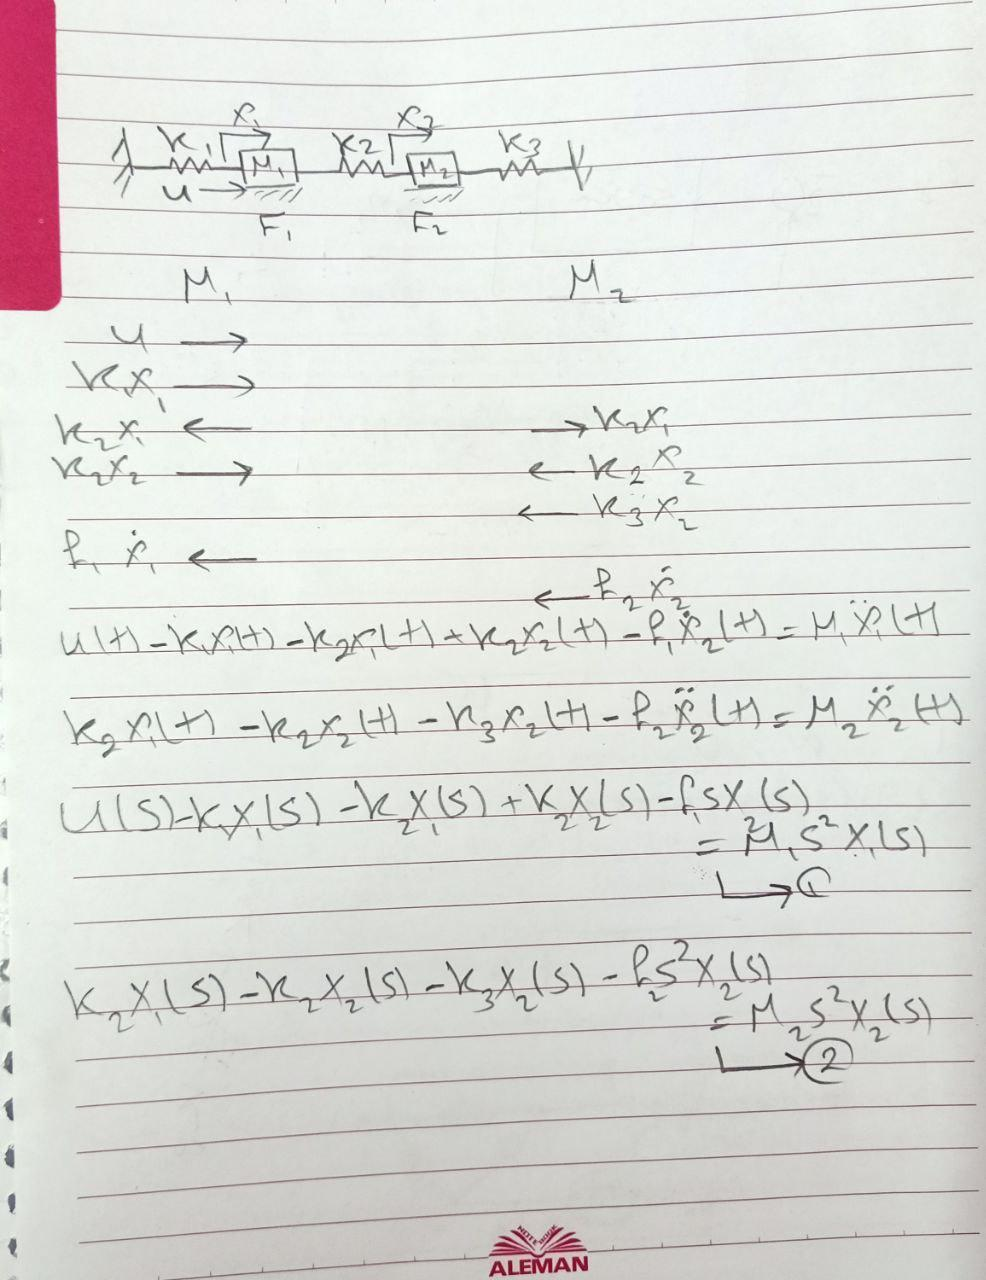 x₁ x₂
k₁ M₁ k₂ M₂ k₃
u →
F₁ F₂
M₁ M₂
u →
k₁x₁ →
k₂x₁ ← → k₂x₁
k₂x₂ → ← k₂x₂
← k₃x₂
f₁ẋ₁ ←
← f₂ẋ₂
u(t) - k₁x₁(t) - k₂x₁(t) + k₂x₂(t) - f₁ẋ₂(t) = M₁ẍ₁(t)
k₂x₁(t) - k₂x₂(t) - k₃x₂(t) - f₂ẍ₂(t) = M₂ẍ₂(t)
U(s) - k₁X₁(s) - k₂X₁(s) + k₂X₂(s) - f₁sX₂(s)
= M₁s²X₁(s)
↳ ①
k₂X₁(s) - k₂X₂(s) - k₃X₂(s) - f₂s²X₂(s)
= M₂s²X₂(s)
↳ ②
NOTE BOOK
ALEMAN